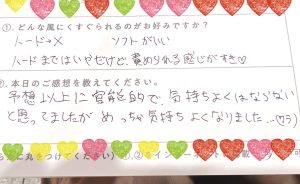 ①.どんな風にくすぐられるのがお好みですか?
ハード→✕　ソフトがいい
ハードまではいやだけど、責められる感じがすき♡
②.本日のご感想を教えてください。
予想以上に官能的で、気持ちよくはならない
と思ってましたが めっちゃ気持ちよくなりました…(♡ヮ♡)
に丸をつけてください)